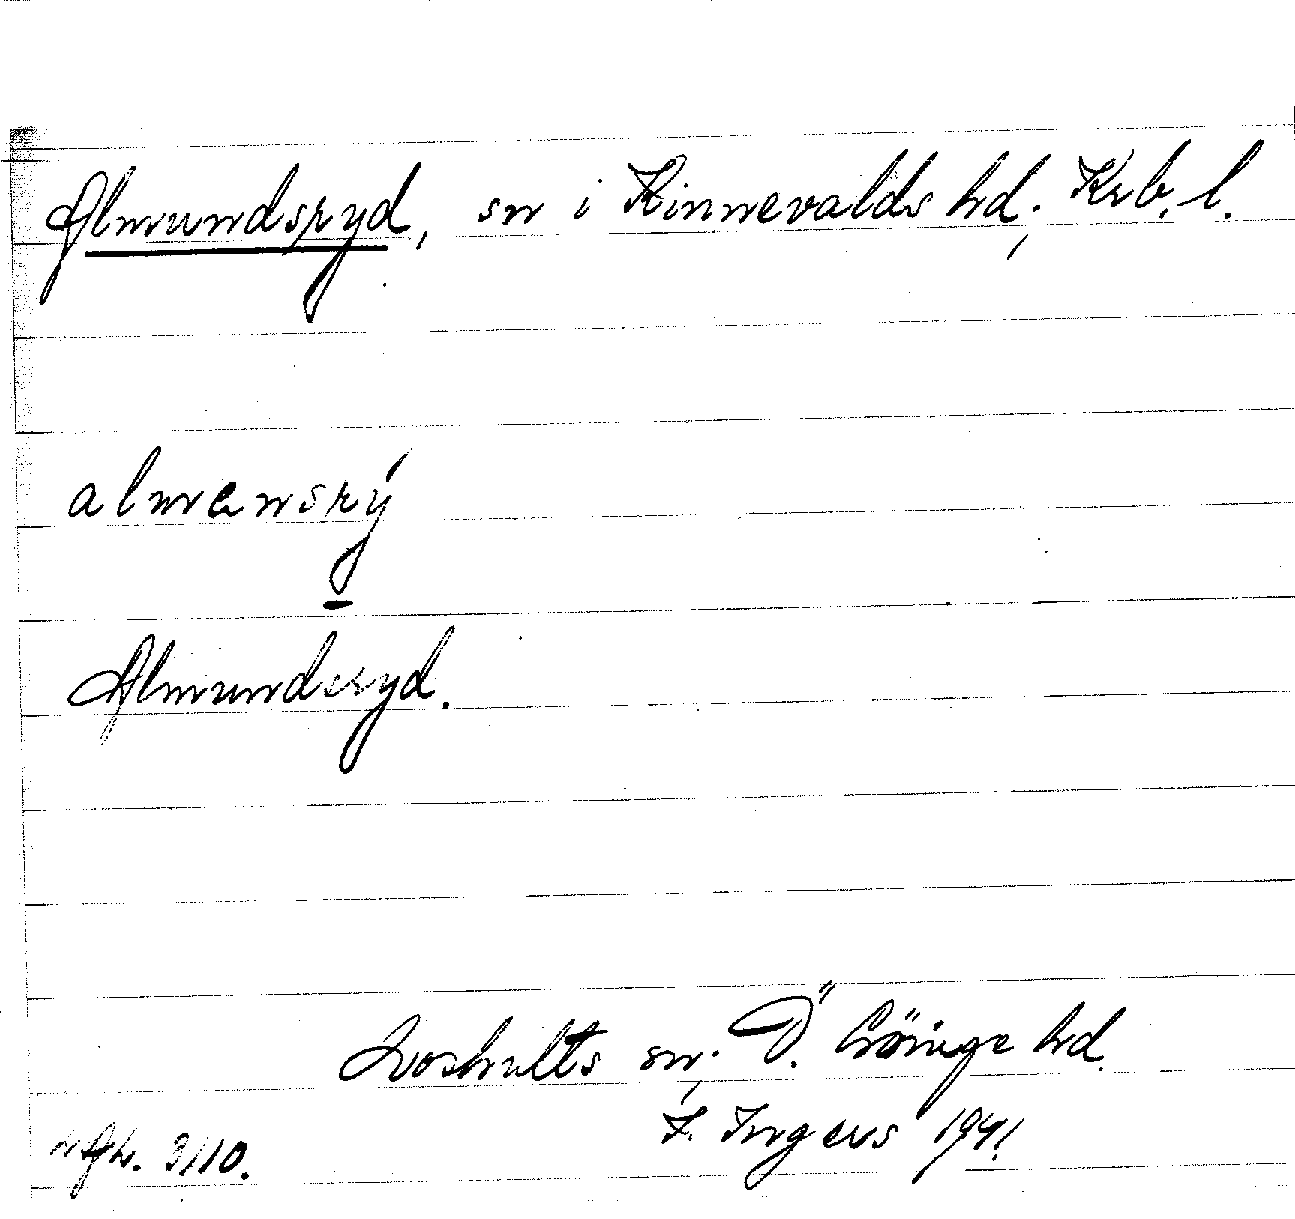 Almundsryd, sn i Kinnevalds hd, Krb. l.
almensrý
Almundsryd.
Loshults sn, Ö. Göinge hd
I. Ingers 1941.
3/10.